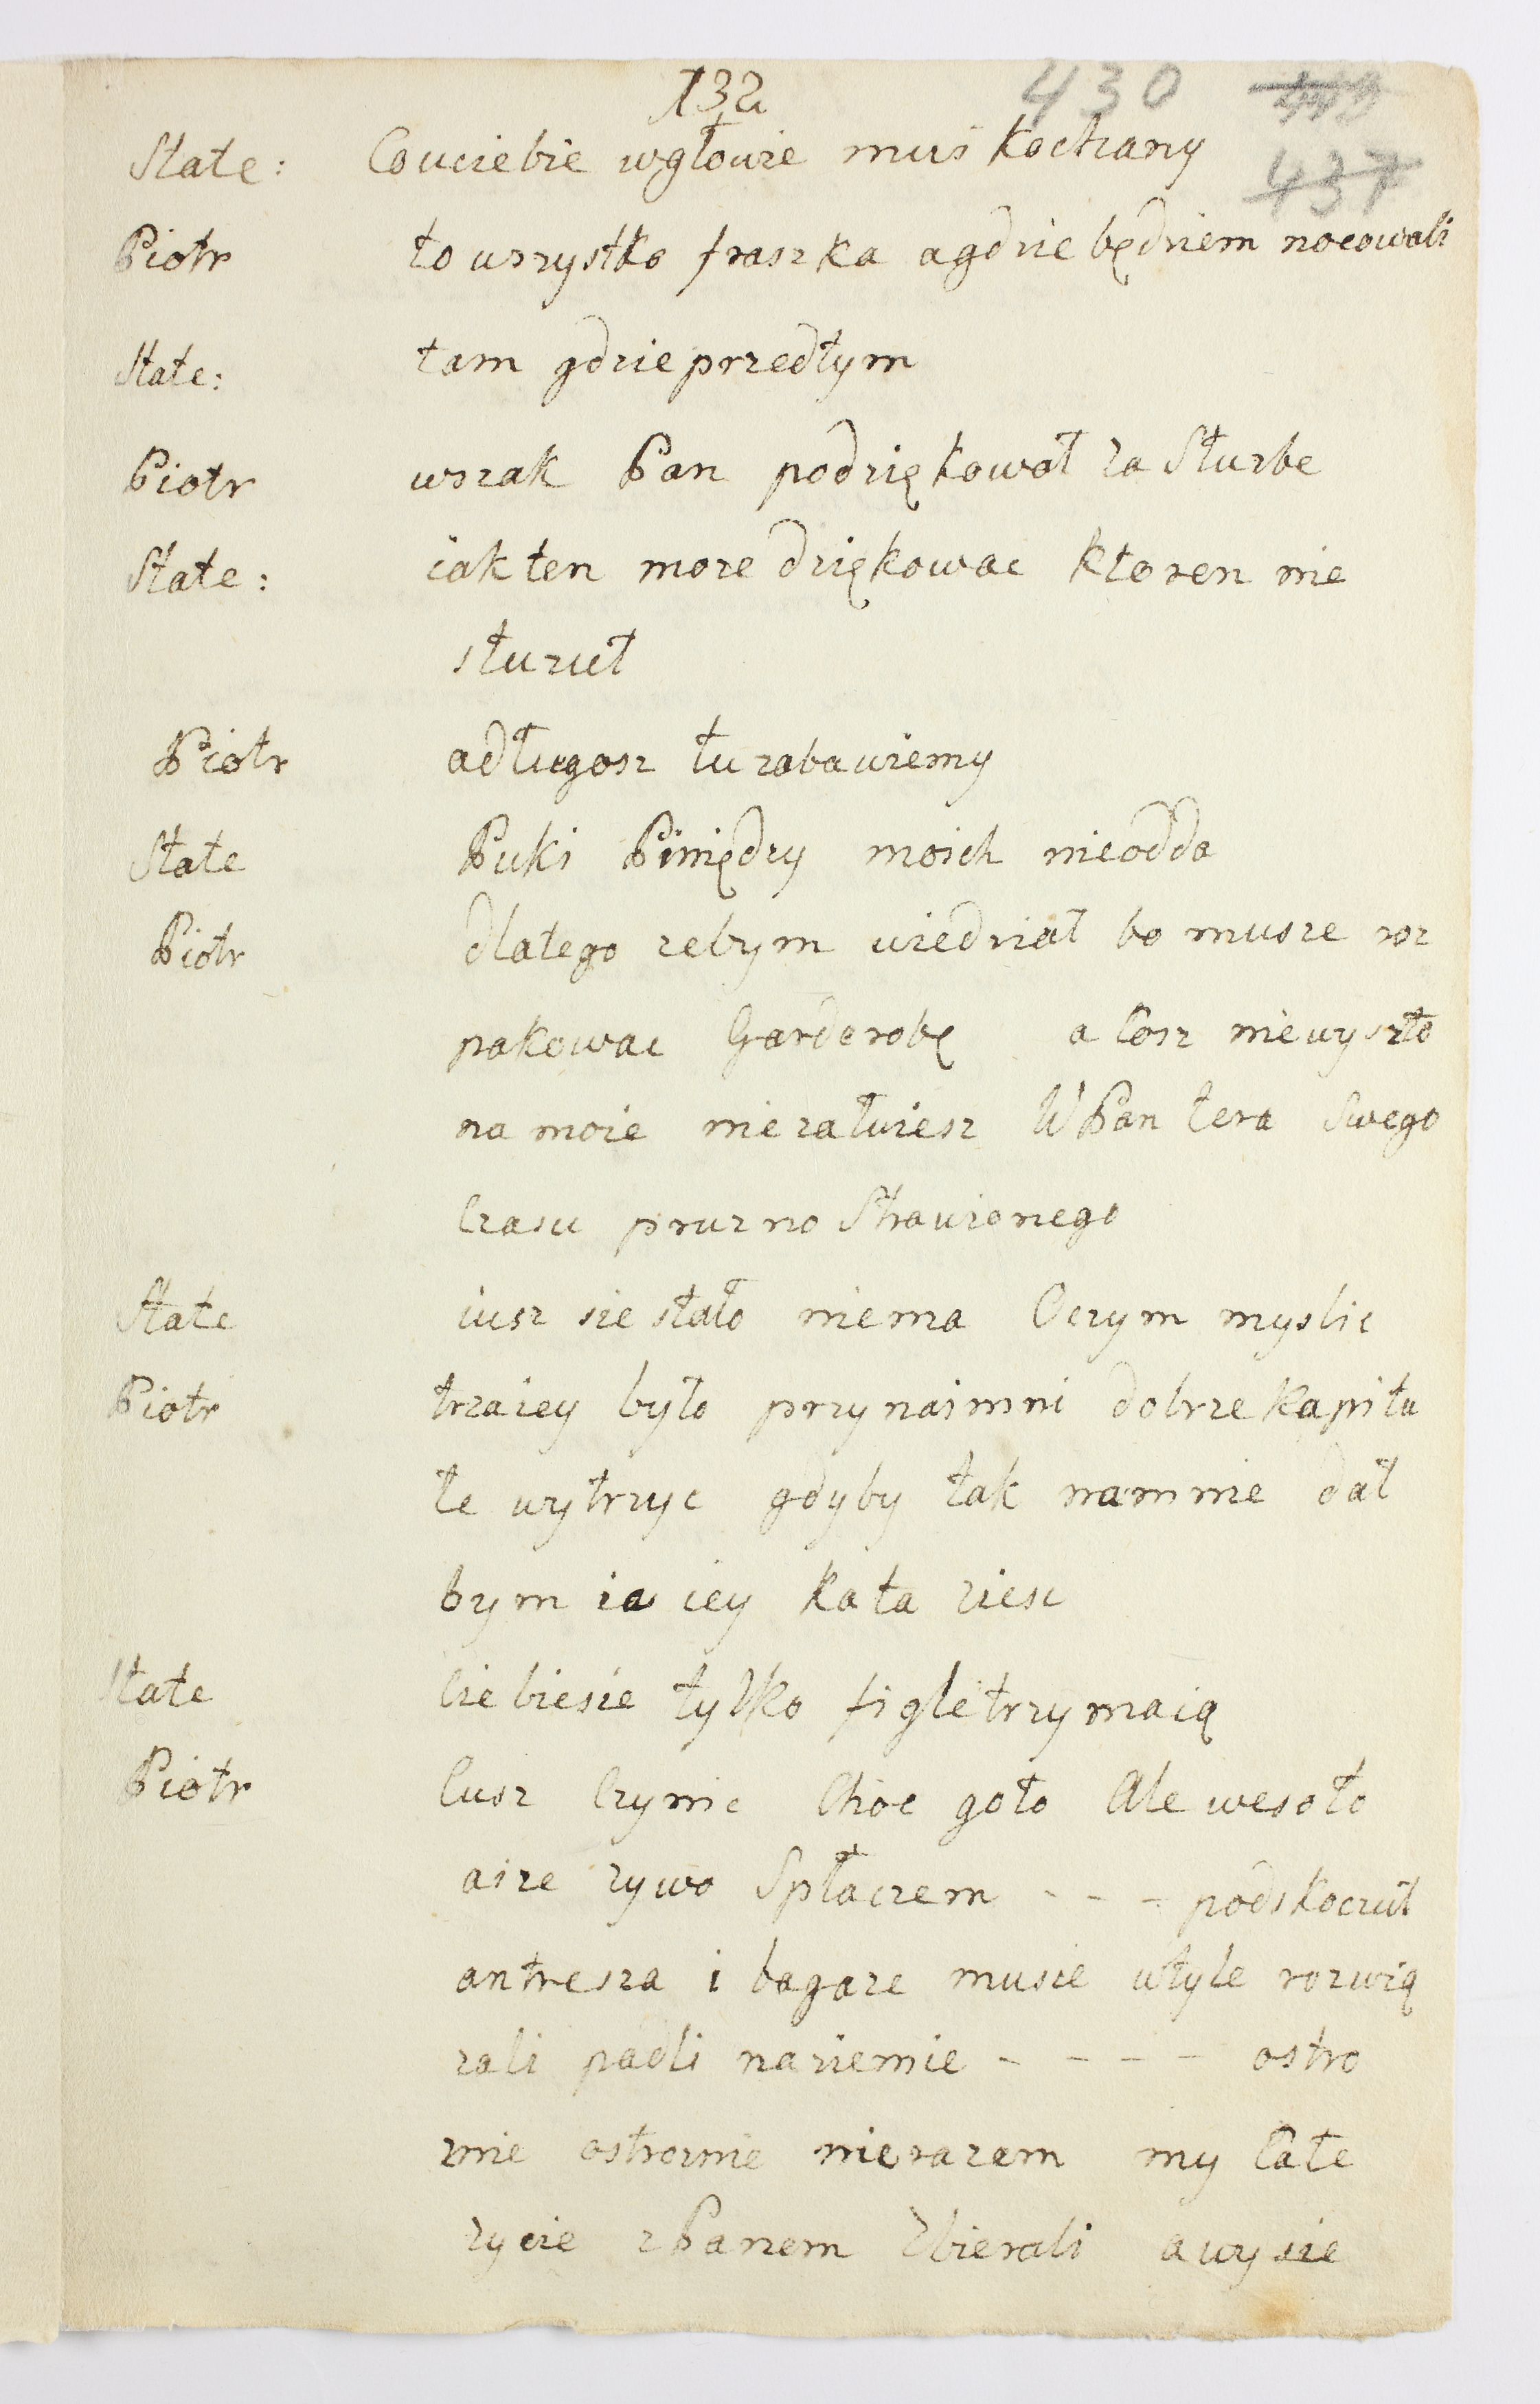 132 430 442
437
State: Couciebie wgłowie muś kochany
Piotr to wszystko fraszka agdzie będziem nocowali
State: tam gdzie przedtym
Piotr wszak Pan podziękował za Służbe
State: iak ten może dziękowac ktoren nie
służuł
Piotr adługosz tu zabawiemy
State Puki Piniędzy moich nieodda
Piotr dlatego zebym wiedział bo musze roz
pakowac Garderobę a Cosz niewyszło
na moie nie załuiesz WPan tera Swego
Czasu prużno Strawionego
State iusz sie stało niema Oczym myslic
Piotr trzaiey było przynaimni dobrze kapitu
łe wytrzyc gdyby tak nam nie dał
bym ia iey kata ziesc
State Ciebiesie tylko figletrzymaią
Piotr Cusz Czynic Choc goło Ale wesoło
aize zywo Spłaczem - - - podskoczuł
antresza i bagaze musie wtyle rozwią
zali padli naziemie - - - - ostro
znie ostroznie nierazem my Całe
zycie zPanem Zbierali a wy sie